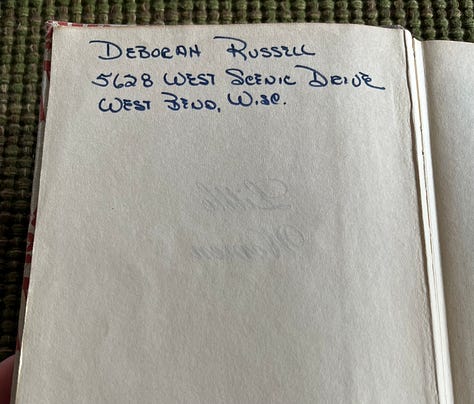 Deborah Russell
5628 West Scenic Drive
West Bend, Wisc.
Little
Women